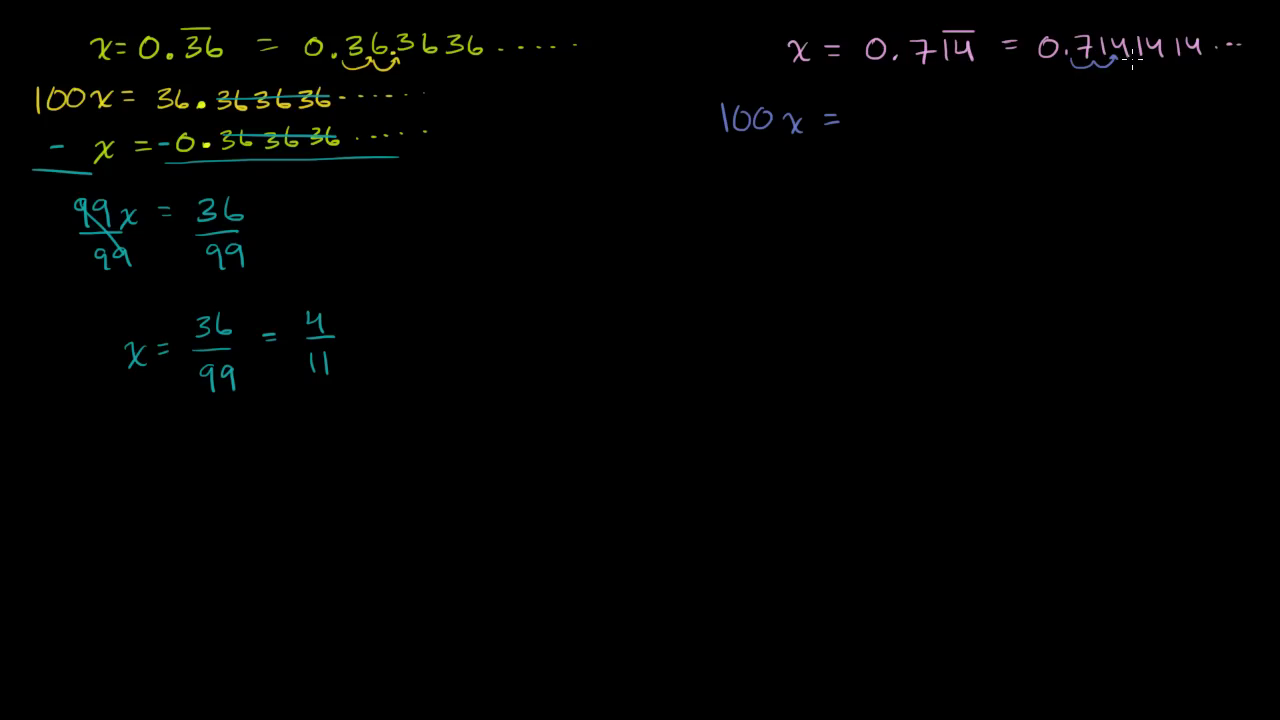 x = 0.3̅6̅ = 0.363636.....
100x = 36.363636......
- x = -0.363636.....
99x/99 = 36/99
x = 36/99 = 4/11
x = 0.71̅4̅ = 0.7141414...
100x =